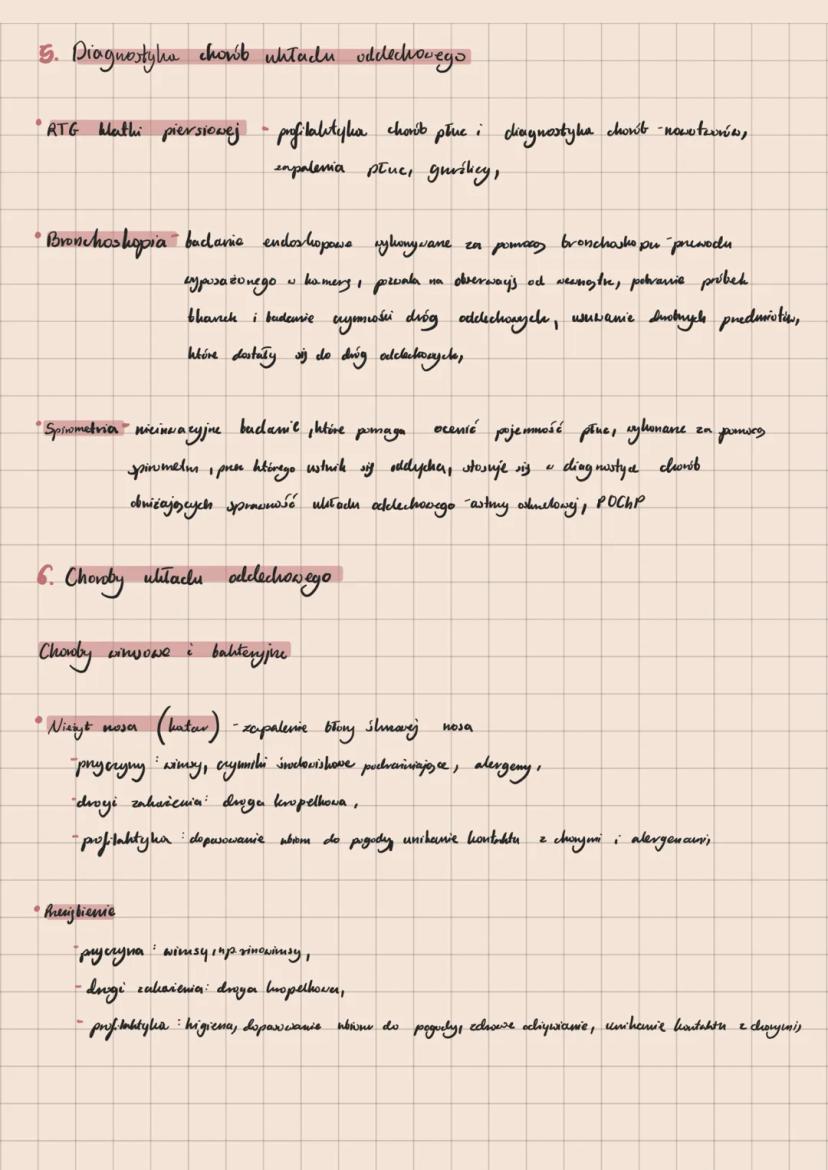 5. Diagnostyka chorób układu oddechowego
• RTG klatki piersiowej - profilaktyka chorób płuc i diagnostyka chorób - nowotworów,
zapalenia płuc, gruźlicy,
• Bronchoskopia - badanie endoskopowe wykonywane za pomocą bronchoskopu - przewodu
wyposażonego w kamerę, pozwala na obserwację od wewnątrz, pobranie próbek
tkanek i badanie czynności dróg oddechowych, usuwanie drobnych przedmiotów,
które dostały się do dróg oddechowych,
• Spirometria - nieinwazyjne badanie, które pomaga ocenić pojemność płuc, wykonane za pomocą
spirometru, przez którego ustnik się oddycha, stosuje się w diagnostyce chorób
obniżających sprawność układu oddechowego - astmy oskrzelowej, POChP
6. Choroby układu oddechowego
Choroby wirusowe i bakteryjne
• Nieżyt nosa (katar) - zapalenie błony śluzowej nosa
- przyczyny: wirusy, czynniki środowiskowe podrażniające, alergeny,
- drogi zakażenia: droga kropelkowa,
- profilaktyka: dopasowanie ubioru do pogody, unikanie kontaktu z chorymi i alergenami,
• Przeziębienie
- przyczyna: wirusy, np. rinowirusy,
- drogi zakażenia: droga kropelkowa,
- profilaktyka: higiena, dopasowanie ubioru do pogody, zdrowe odżywianie, unikanie kontaktu z chorymi,